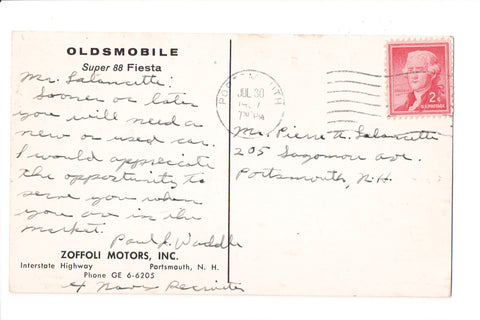 OLDSMOBILE
Super 88 Fiesta
Mr. Lalancette:
Sooner or later
you will need a
new or used car.
I would appreciate
the opportunity to
serve you when
you are in the
market.
Paul J. Waddle
ZOFFOLI MOTORS, INC.
Interstate Highway Portsmouth, N. H.
Phone GE 6-6205
ex Navy Recruiter
JUL 30
7 PM
2¢
Mr. Pierre A. Lalancette
205 Sagamore ave.
Portsmouth, N.H.